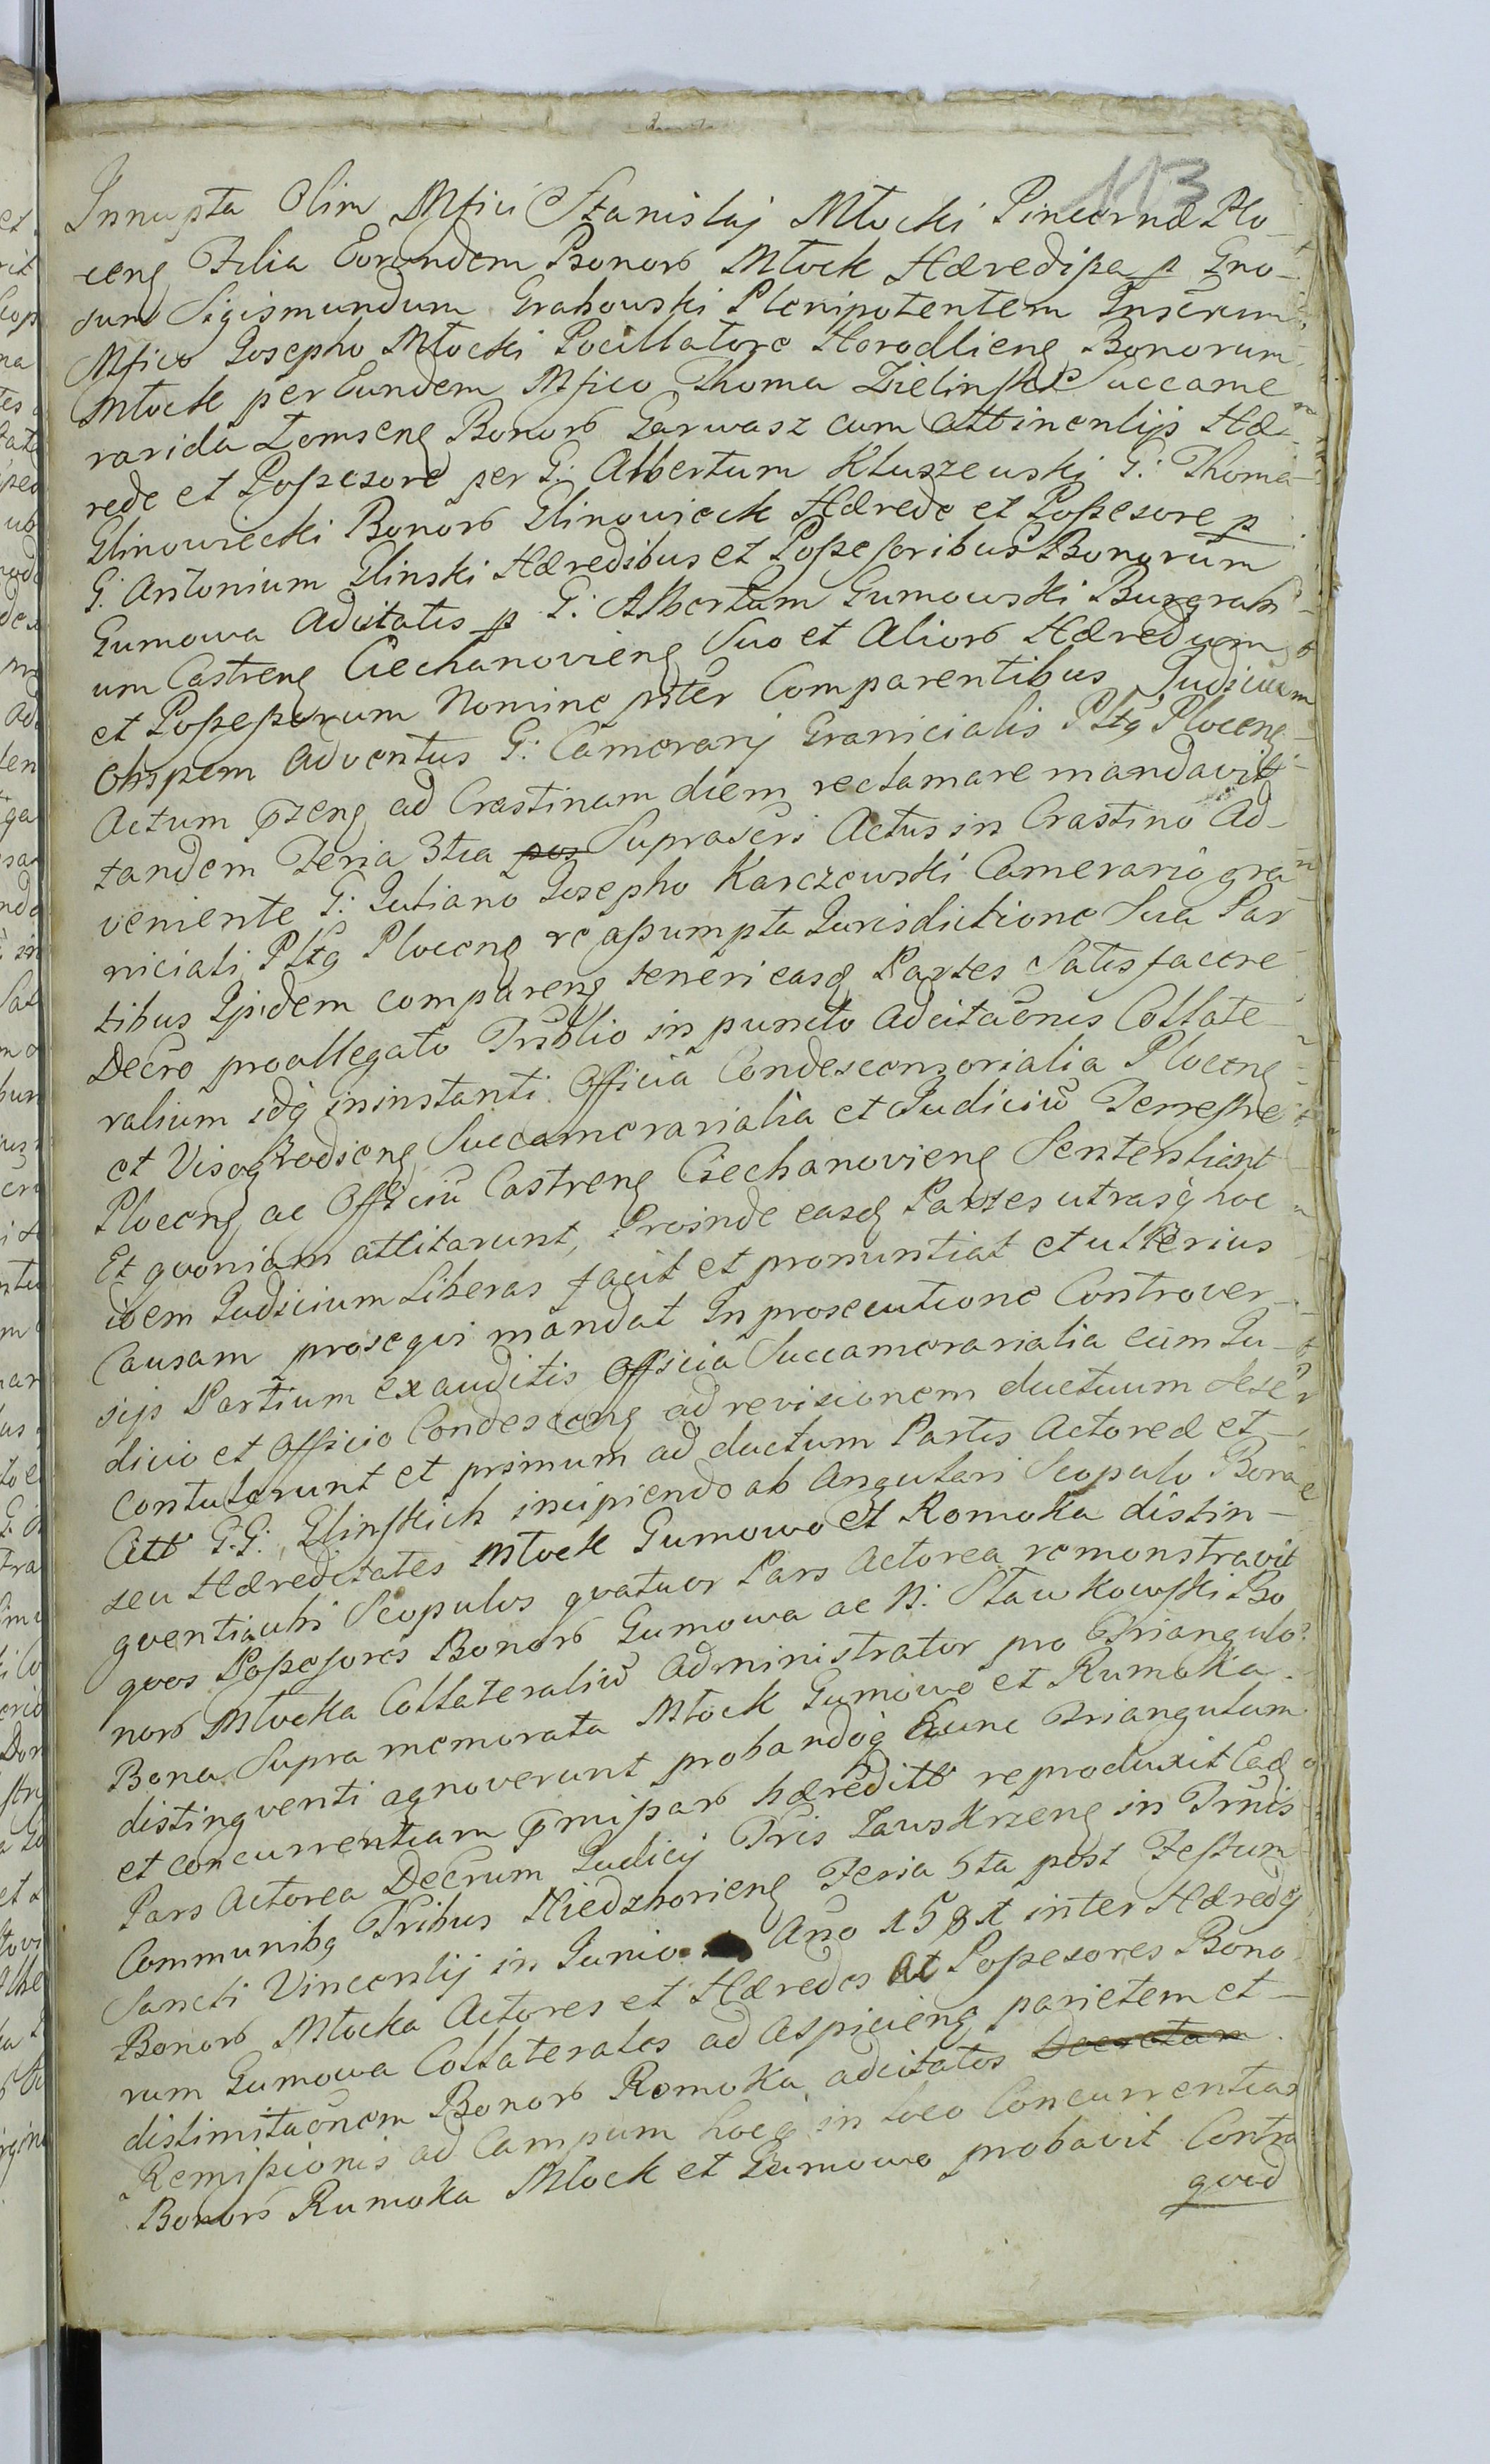 113
Innupta Olim Mfici Stanislaj Młocki Pincernæ Plo-
ceng Filia Eorundem Bonorb Młock Hæredissa p Gno-
sum Sigismundum Grabowski Plenipotentem Inscrum
Mfico Josepho Młocki Pocillatore Horodlieng Bonorum
Młock per Eundem Mfico Thoma Zielinski Succame
rarida Zomseng Bonorb Garwasz cum attinentijs Hæ-
rede et Possesore per G: Albertum Kłuszewski G: Thoma
Glinowiecki Bonorb Glinowieck Hærede et Possesore p
G: Antonium Glinski Hæredibus et Possessoribus Bonorum
Gumowa Adcitatis p G: Albertum Gumowski Burgrabi
um Castreng Ciechanovieng Suo et Aliorb Hæredum
et Possessorum Nomine pster Comparentibus Judicium
Obspem Adventus G: Camerarij Granicialis Pltg Ploceng
Actum pzeng ad Crastinam diem reclamare mandavit
tandem Feria 3tia pos Suprascri Actus in Crastino Ad-
veniente G: Juliano Josepho Karczewski Camerario gra
niciali Pltg Ploceng reassumpta Jurisdictione Sua Par
tibus Ijsdem compareng teneri easq Partes Satisfacere
Decro proallegato Trsblio in puncto Adcitaonis Collate
ralium idq ininstanti Officia Condescensorialia Ploceng
et Visogrodieng Succamerarialia et Judiciu Terrestre
Ploceng ac Officiu Castreng Ciechanovieng Sententiant
Et quoniam attitarunt, Proinde easq Partes utrasq hoc
idem Judicium Liberas facit et pronuntiat et ulterius
Causam prosequi mandat In prosecutione Controver-
sijs Partium exauditis Officia Succamerarialia cum Ju-
dicio et Officio Condesceng ad revisionem ductuum Sese
Contulerunt et primum ad ductum Partis Actoreæ et
Citt G.G: Glinskich incipiendo ab Angulari Scopulo Bona
seu Hæreditates Młock Gumowo et Romoka distin-
gventi ubi Scopulos quatuor Pars Actorea remonstravit
quos Possessores Bonorb Gumowa ac N: Stawkowski Bo
norb Młocka Collateraliu Administrator pro Triangulo
Bona Supra memorata Młock Gumowo et Rumoka
distingventi agnoverunt probandoq hunc Triangulum
et concurrentiam pmissarb hæreditt reproduxit Ead
Pars Actorea Decrum Judicij Tris Zawskrzeng in Trnis
Communibq Tribus Niedzborieng Feria 5ta post Festum
Sancti Vincentij in Junio Ano 1581 inter Hæredes
Bonorb Młocka Actores et Hæredes ac Possesores Bono
rum Gumowa Collaterales ad Aspicieng parietem et
dislimitaonem Bonorb Romoka adcitatos Decretum
Remissionis ad Campum hocq in loco Concurrentias
Bonorb Rumoka Młock et Gumowo probavit Contra
quod